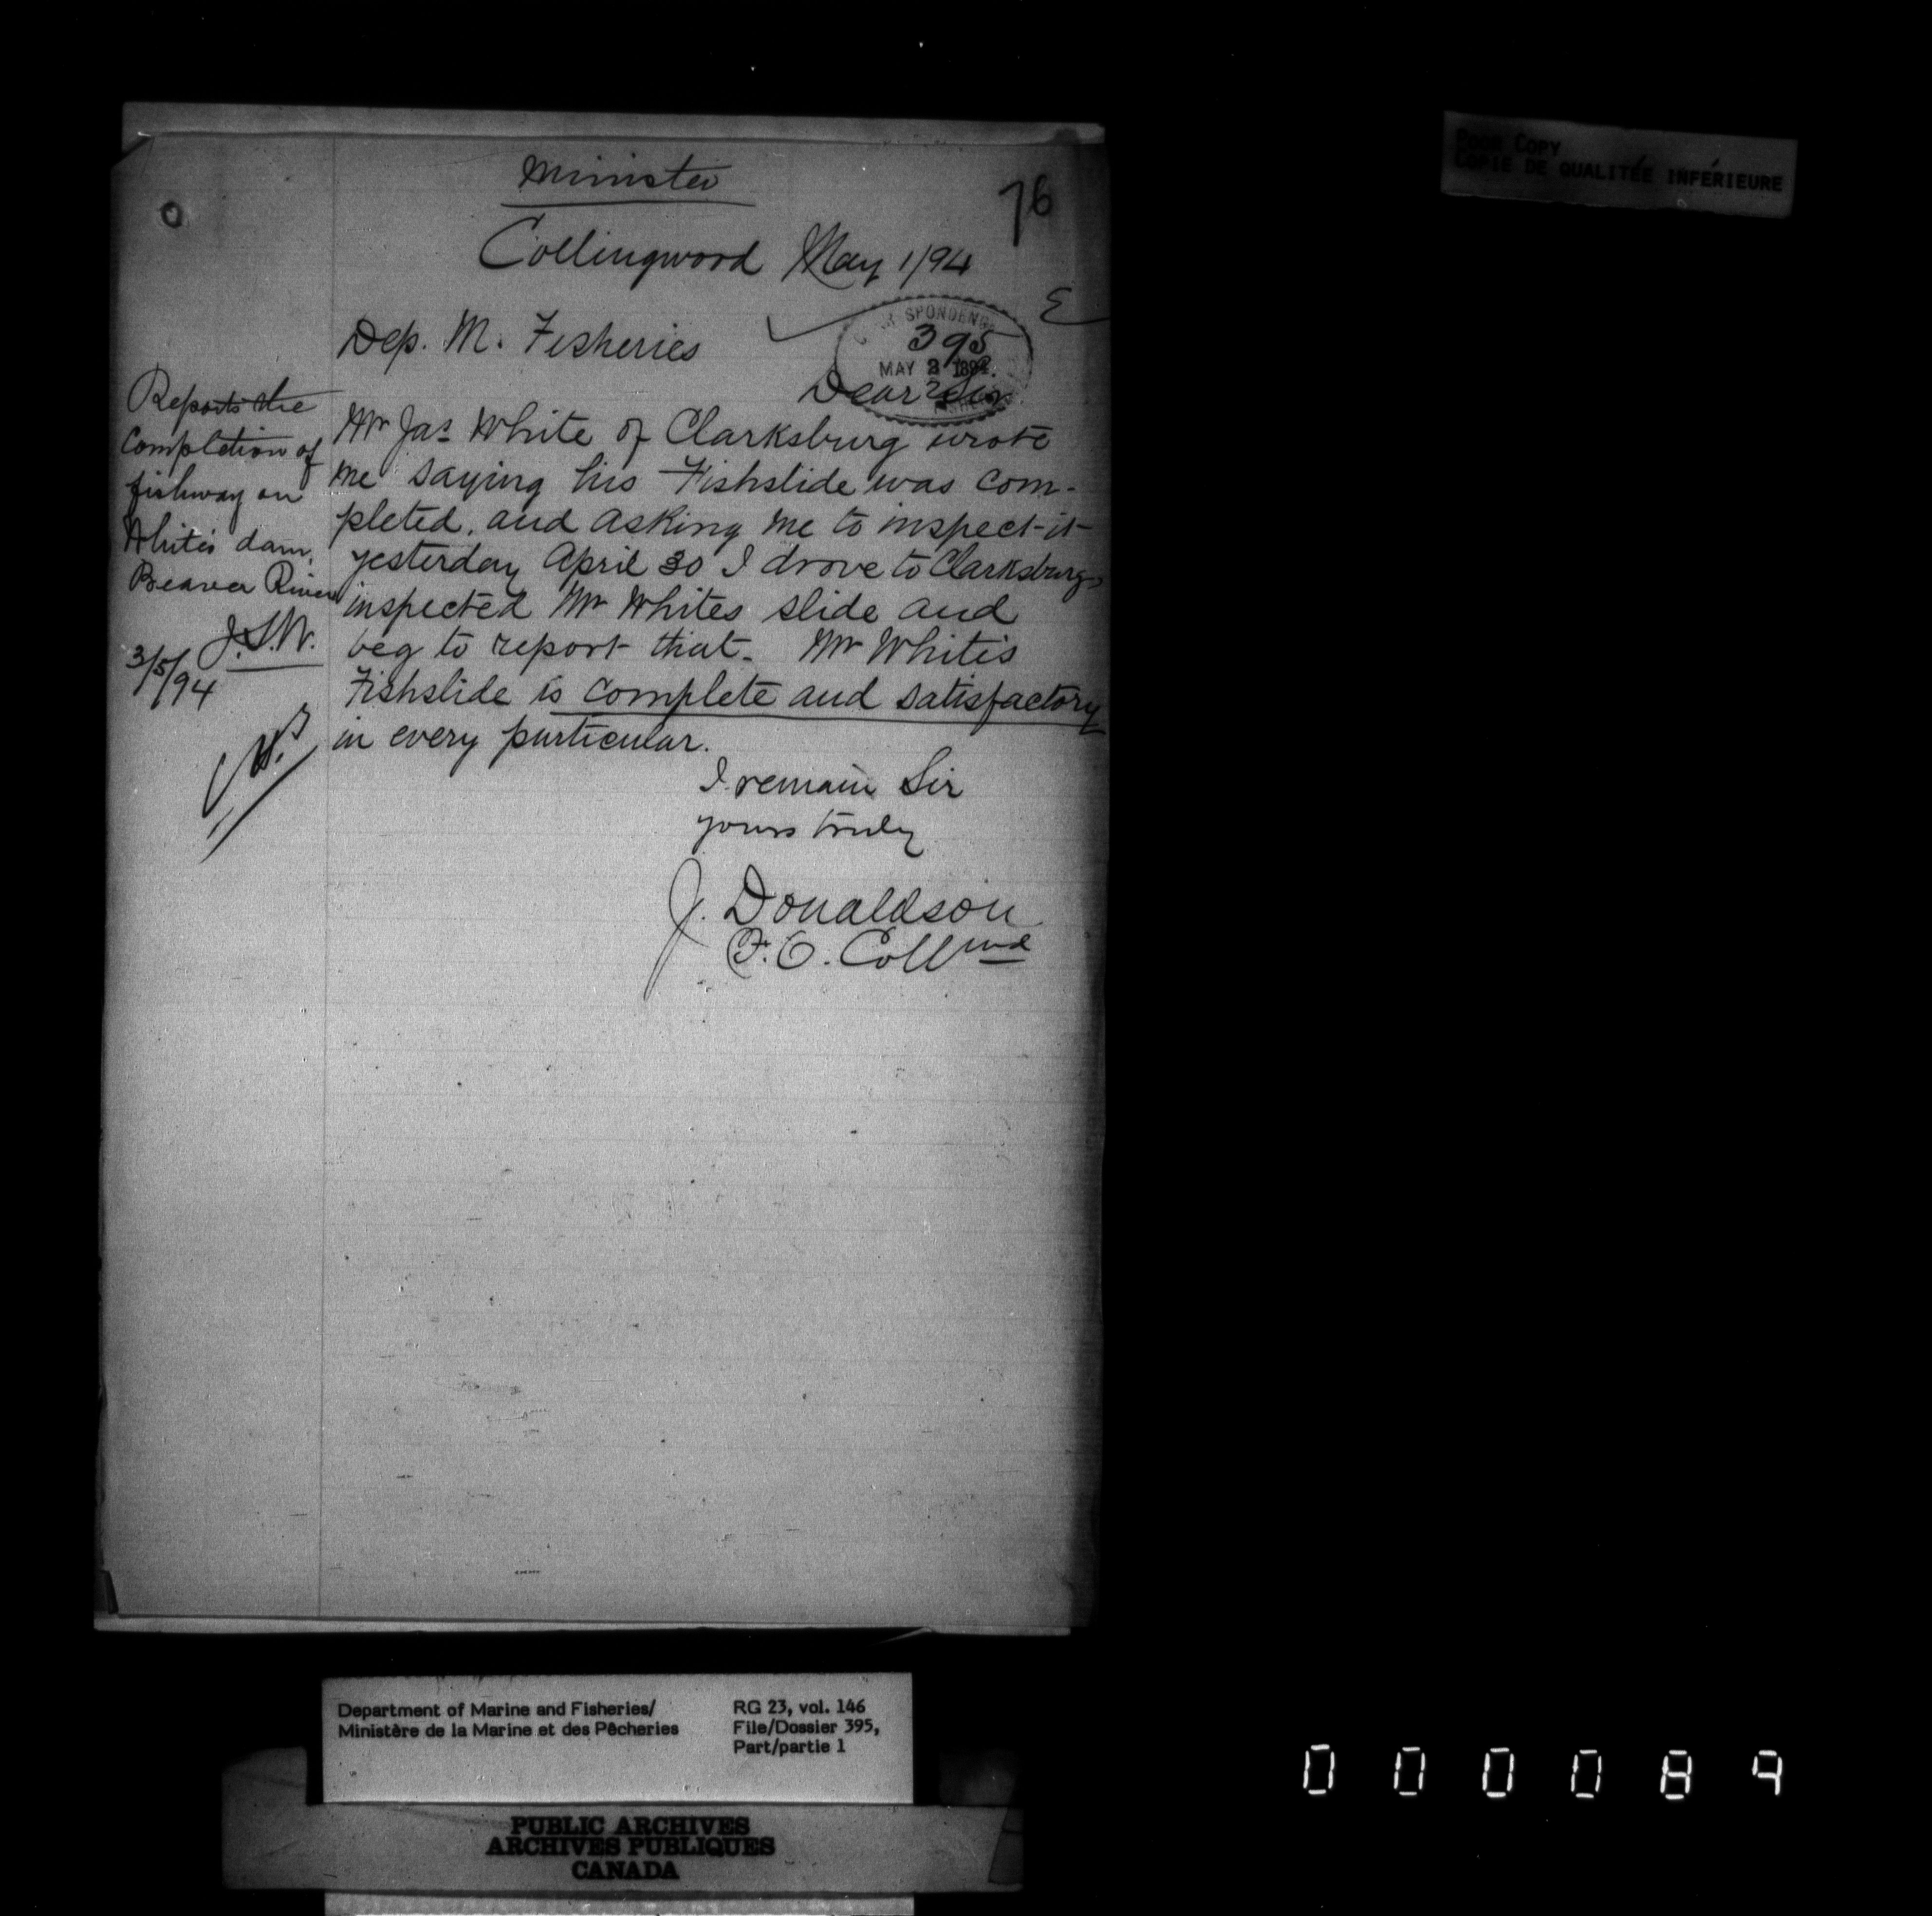 Minister
76
Collingwood May 1/94
Dep. M. Fisheries
SPONDENC
395
MAY 3 1894.
Dear Sir
Mr Jas White of Clarksburg wrote
me saying his Fishslide was com-
pleted. and asking me to inspect it
yesterday April 30 I drove to Clarksburg
inspected Mr Whites slide and
beg to report that. Mr White's
Fishslide is complete and satisfactory
in every particular.
I remain Sir
yours truly
J. Donaldson
F.O. Collwd
Reports the
completion of
fishway on
White's dam,
Beaver River
J.S.W.
3/5/94
POOR COPY
COPIE DE QUALITÉE INFÉRIEURE
Department of Marine and Fisheries/
Ministère de la Marine et des Pêcheries
RG 23, vol. 146
File/Dossier 395,
Part/partie 1
PUBLIC ARCHIVES
ARCHIVES PUBLIQUES
CANADA
000089